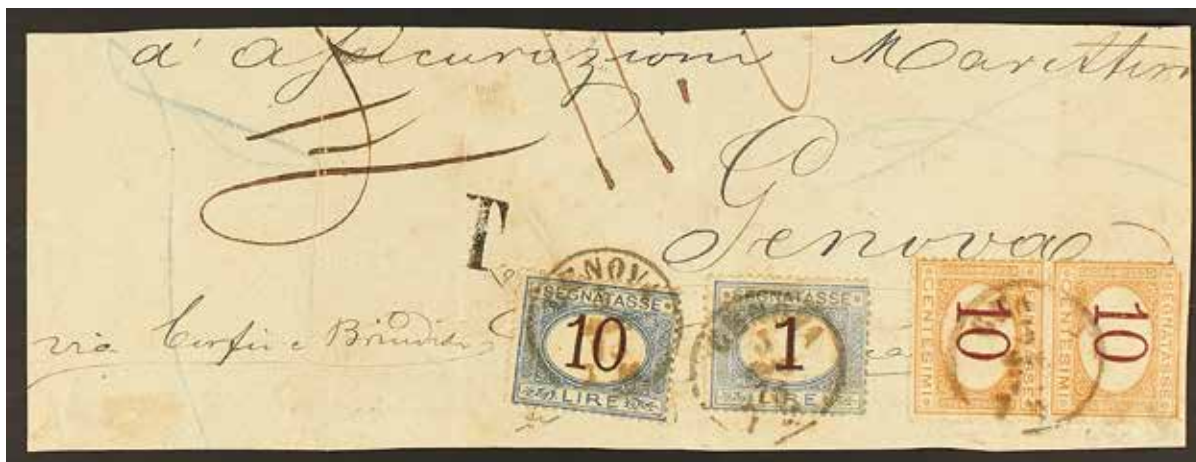 d' Assicurazioni Marittim
Genova
T
via Corfu e Brindisi
GENOVA
SEGNATASSE
10
LIRE
SEGNATASSE
1
LIRE
SEGNATASSE
10
CENTESIMI
SEGNATASSE
10
CENTESIMI